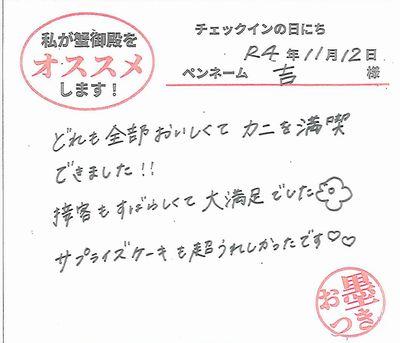 私が蟹御殿を
オススメ
します！
チェックインの日にち
R4年11月12日
ペンネーム 吉 様
どれも全部おいしくてカニを満喫
できました!!
接客もすばらしくて大満足でした
サプライズケーキも超うれしかったです♡♡
お墨つき